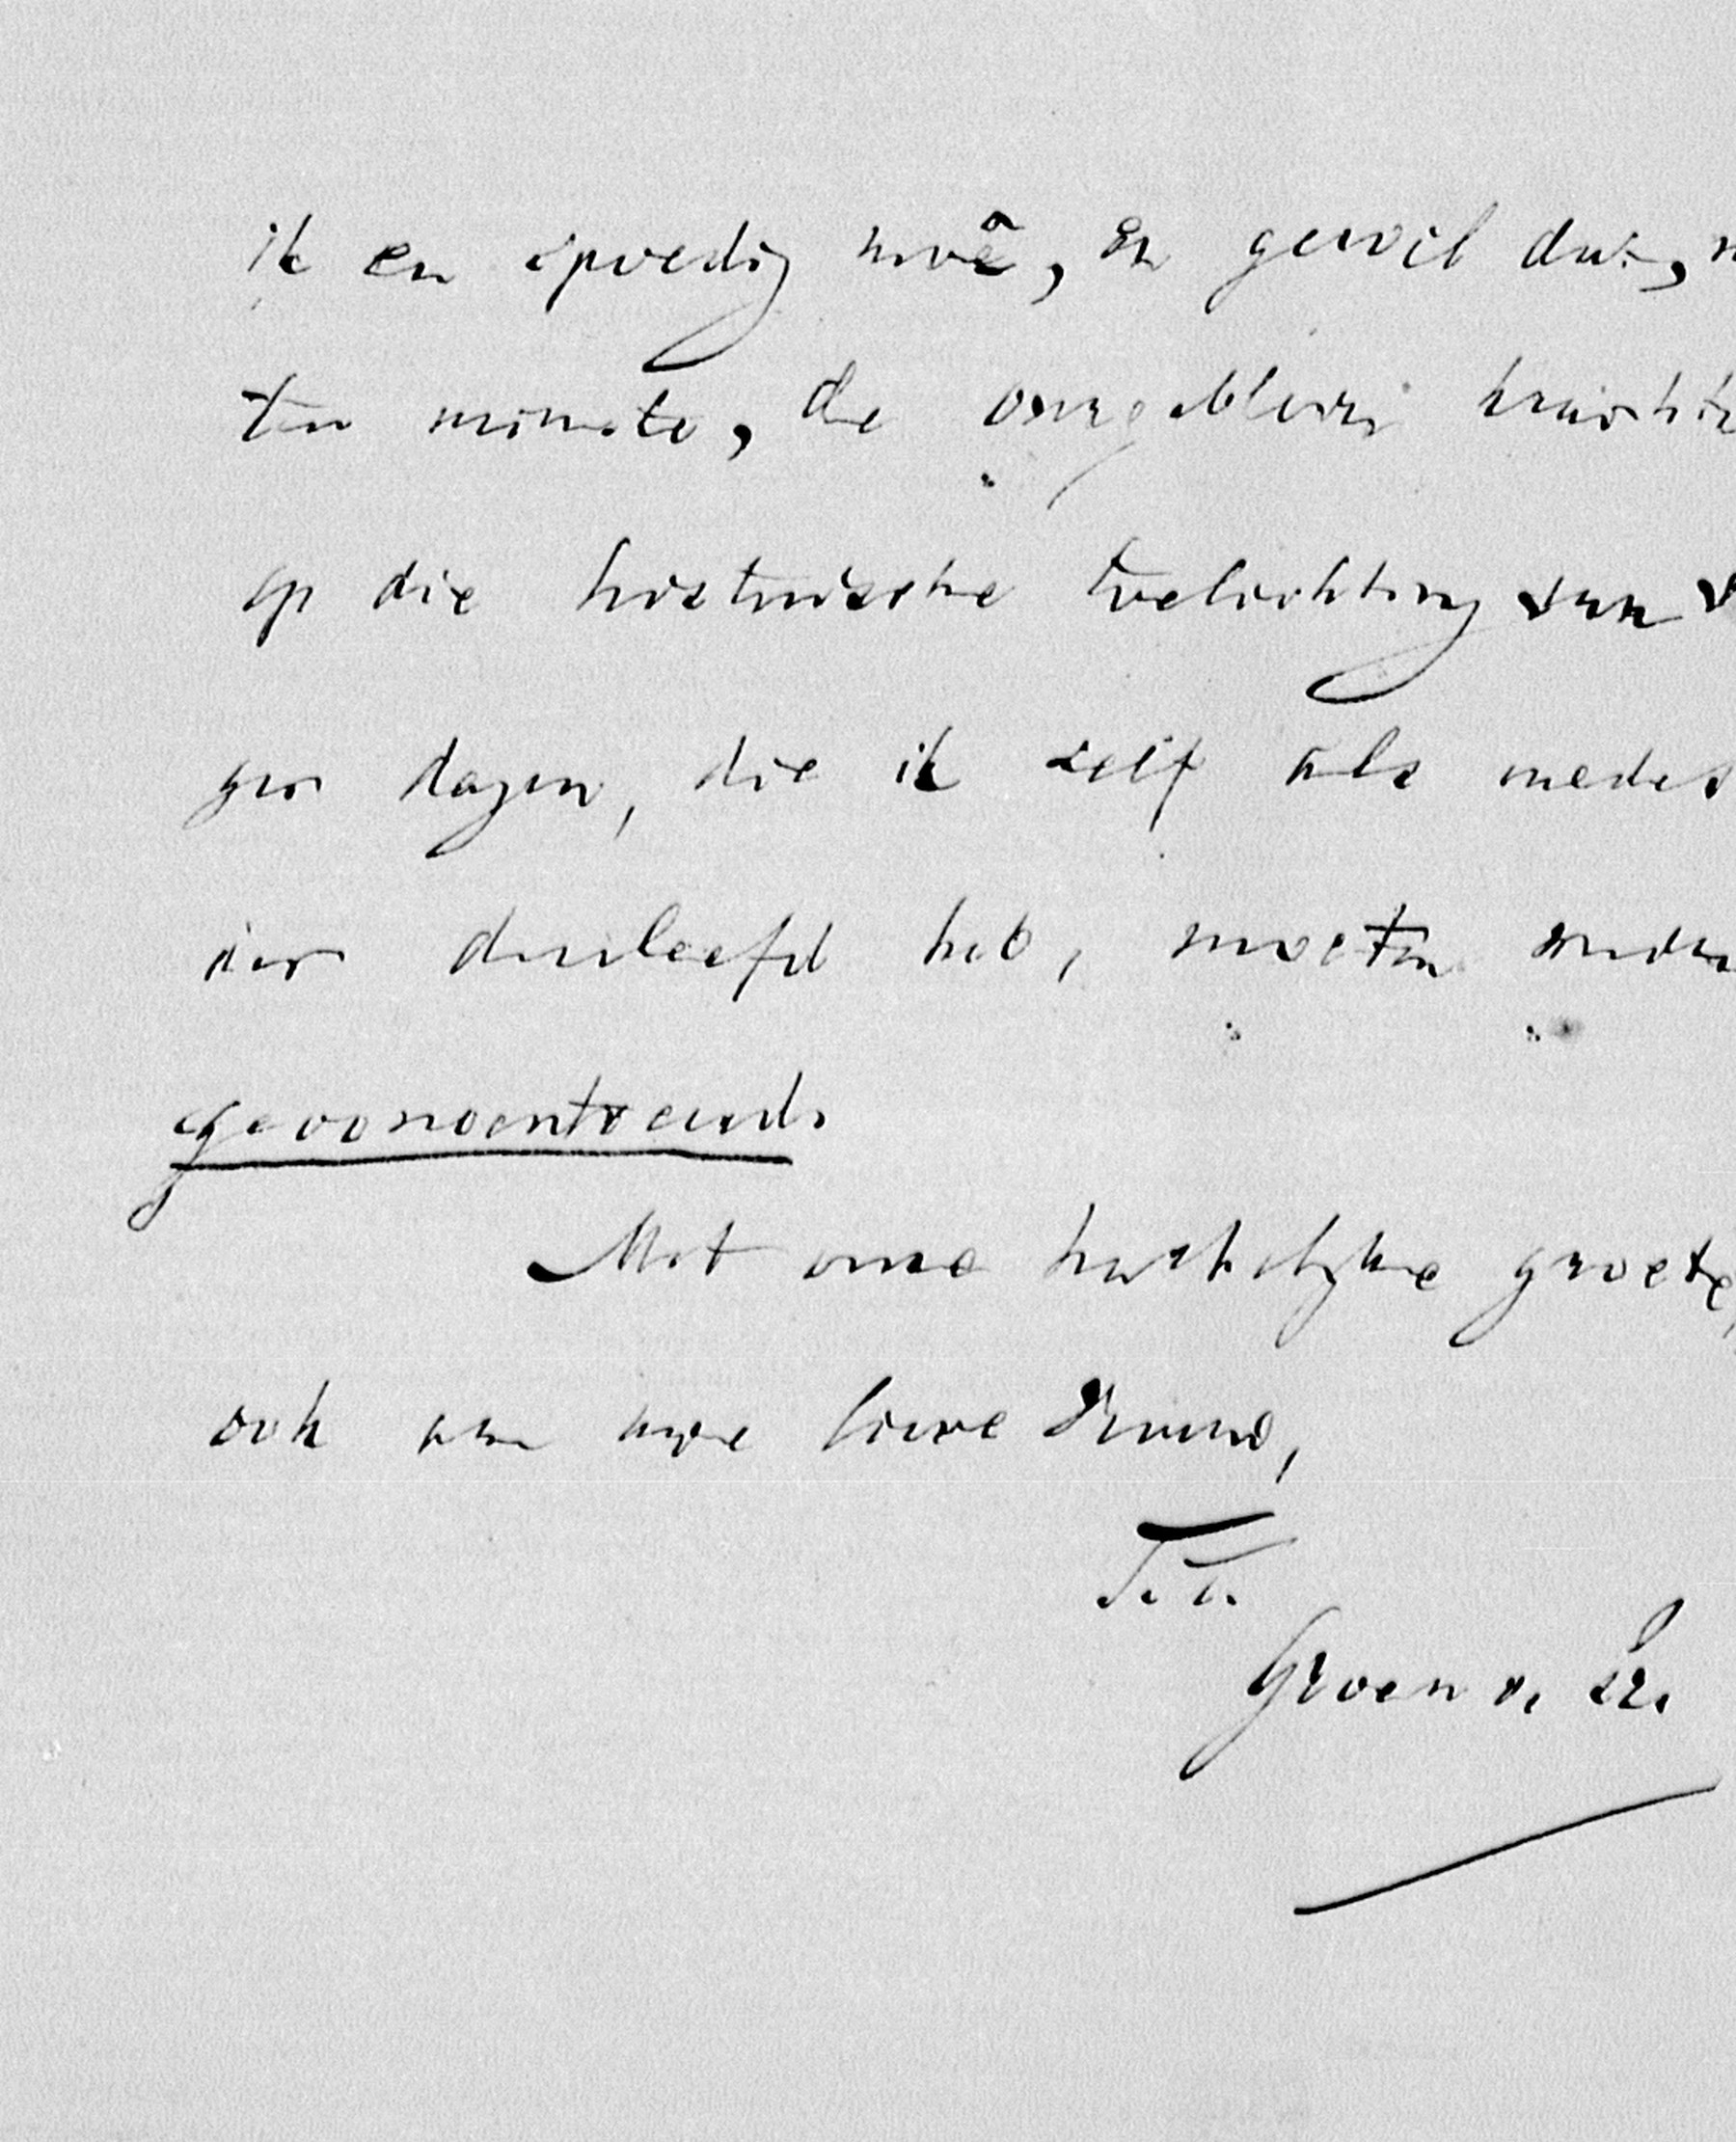 ik en spoedig moê, en gevoel dus, n
ten minste, de overgebleven krachte
op die historische toelichting van v
ger dagen, die ik zelf als medes
der doorleefd heb, moeten worden
geconcentreerd.
Met onze hartelijke groete,
ook aan uwe lieve Vrouw,
T.T.
Groen v. Pr.